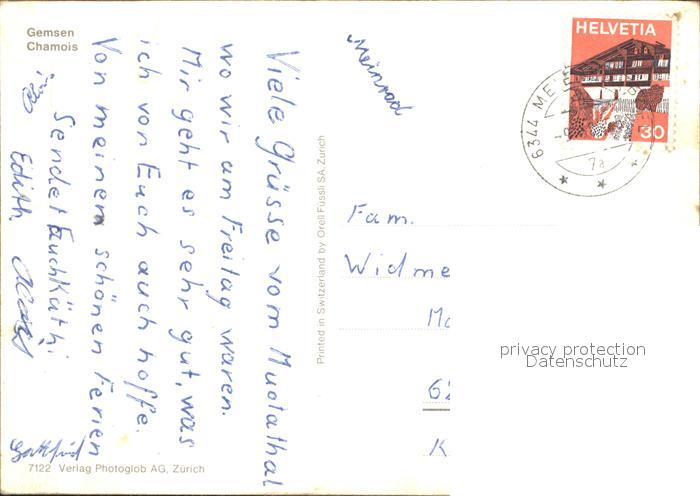 Gemsen
Chamois
Meinrad
HELVETIA
30
6344 MEIE
7a
Viele Grüsse vom Muotathal
wo wir am Freitag waren.
Mir geht es sehr gut, was
ich von Euch auch hoffe.
Von meinem schönen Ferien
Sendet Euch Käthi
Edith
Gottfried
Printed in Switzerland by Orell Füssli SA, Zürich
Fam.
Widme
Ma
62
K
privacy protection
Datenschutz
7122 Verlag Photoglob AG, Zürich